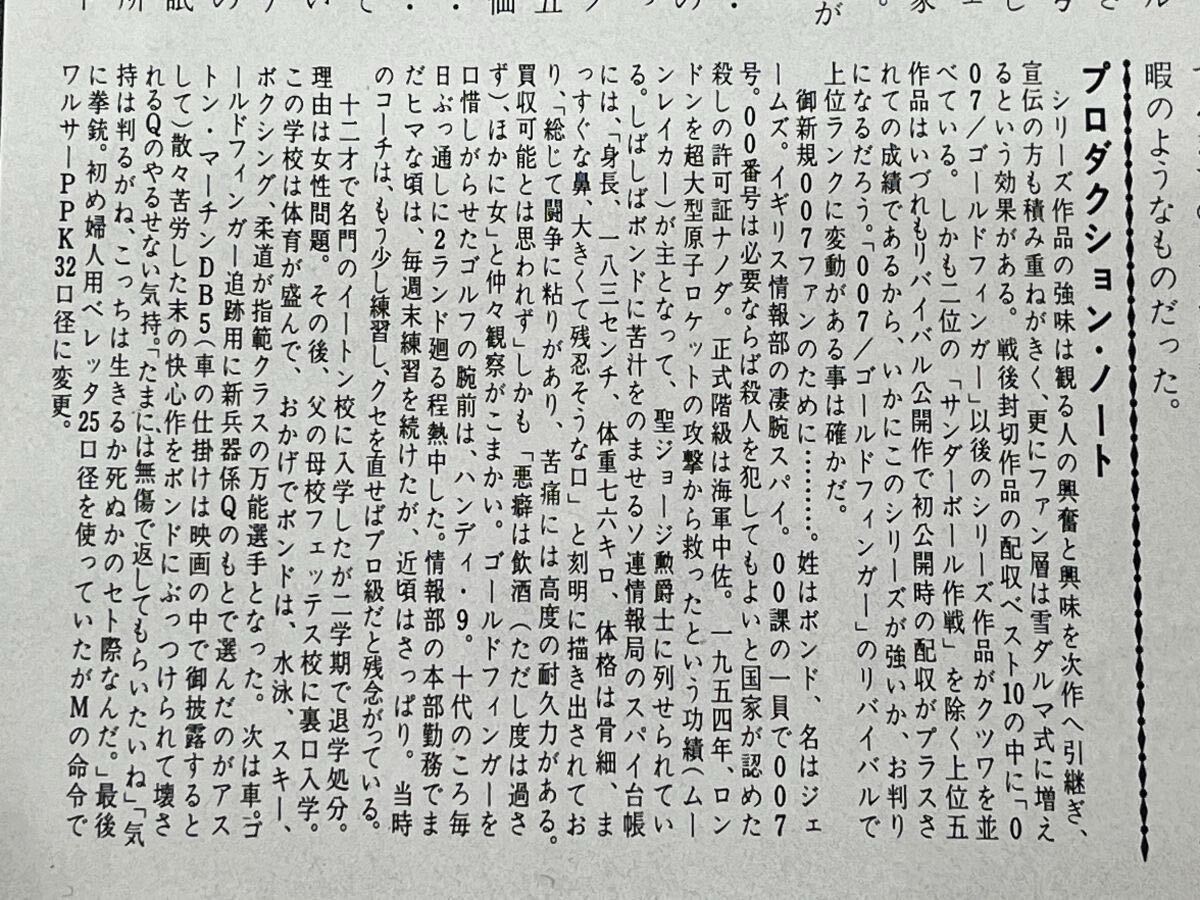 暇のようなものだった。
プロダクション・ノート
シリーズ作品の強味は観る人の興奮と興味を次作へ引継ぎ、
宣伝の方も積み重ねがきく、更にファン層は雪ダルマ式に増え
るという効果がある。戦後封切作品の配収ベスト10の中に「0
07/ゴールドフィンガー」以後のシリーズ作品がクツワを並
べている。しかも二位の「サンダーボール作戦」を除く上位五
作品はいづれもリバイバル公開作で初公開時の配収がプラスさ
れての成績であるから、いかにこのシリーズが強いか、お判り
になるだろう。「007/ゴールドフィンガー」のリバイバルで
上位ランクに変動がある事は確かだ。
御新規007ファンのために………。姓はボンド、名はジェ
ームズ。イギリス情報部の凄腕スパイ。00課の一員で007
号。00番号は必要ならば殺人を犯してもよいと国家が認めた
殺しの許可証ナノダ。正式階級は海軍中佐。一九五四年、ロン
ドンを超大型原子ロケットの攻撃から救ったという功績(ムー
ンレイカー)が主となって、聖ジョージ勲爵士に列せられてい
る。しばしばボンドに苦汁をのませるソ連情報局のスパイ台帳
には、「身長、一八三センチ、体重七六キロ、体格は骨細、ま
っすぐな鼻、大きくて残忍そうな口」と刻明に描き出されてお
り、「総じて闘争に粘りがあり、苦痛には高度の耐久力がある。
買収可能とは思われず」しかも「悪癖は飲酒(ただし度は過さ
ず)、ほかに女」と仲々観察がこまかい。ゴールドフィンガーを
口惜しがらせたゴルフの腕前は、ハンディ・9。十代のころ毎
日ぶっ通しに2ランド廻る程熱中した。情報部の本部勤務でま
だヒマな頃は、毎週末練習を続けたが、近頃はさっぱり。当時
のコーチは、もう少し練習し、クセを直せばプロ級だと残念がっている。
十二才で名門のイートン校に入学したが二学期で退学処分。
理由は女性問題。その後、父の母校フェッテス校に裏口入学。
この学校は体育が盛んで、おかげでボンドは、水泳、スキー、
ボクシング、柔道が指範クラスの万能選手となった。次は車。ゴ
ールドフィンガー追跡用に新兵器係Qのもとで選んだのがアス
トン・マーチンDB5(車の仕掛けは映画の中で御披露すると
して)散々苦労した末の快心作をボンドにぶっつけられて壊さ
れるQのやるせない気持。「たまには無傷で返してもらいたいね」「気
持は判るがね、こっちは生きるか死ぬかのセト際なんだ。」最後
に拳銃。初め婦人用ベレッタ25口径を使っていたがMの命令で
ワルサーPPK32口径に変更。